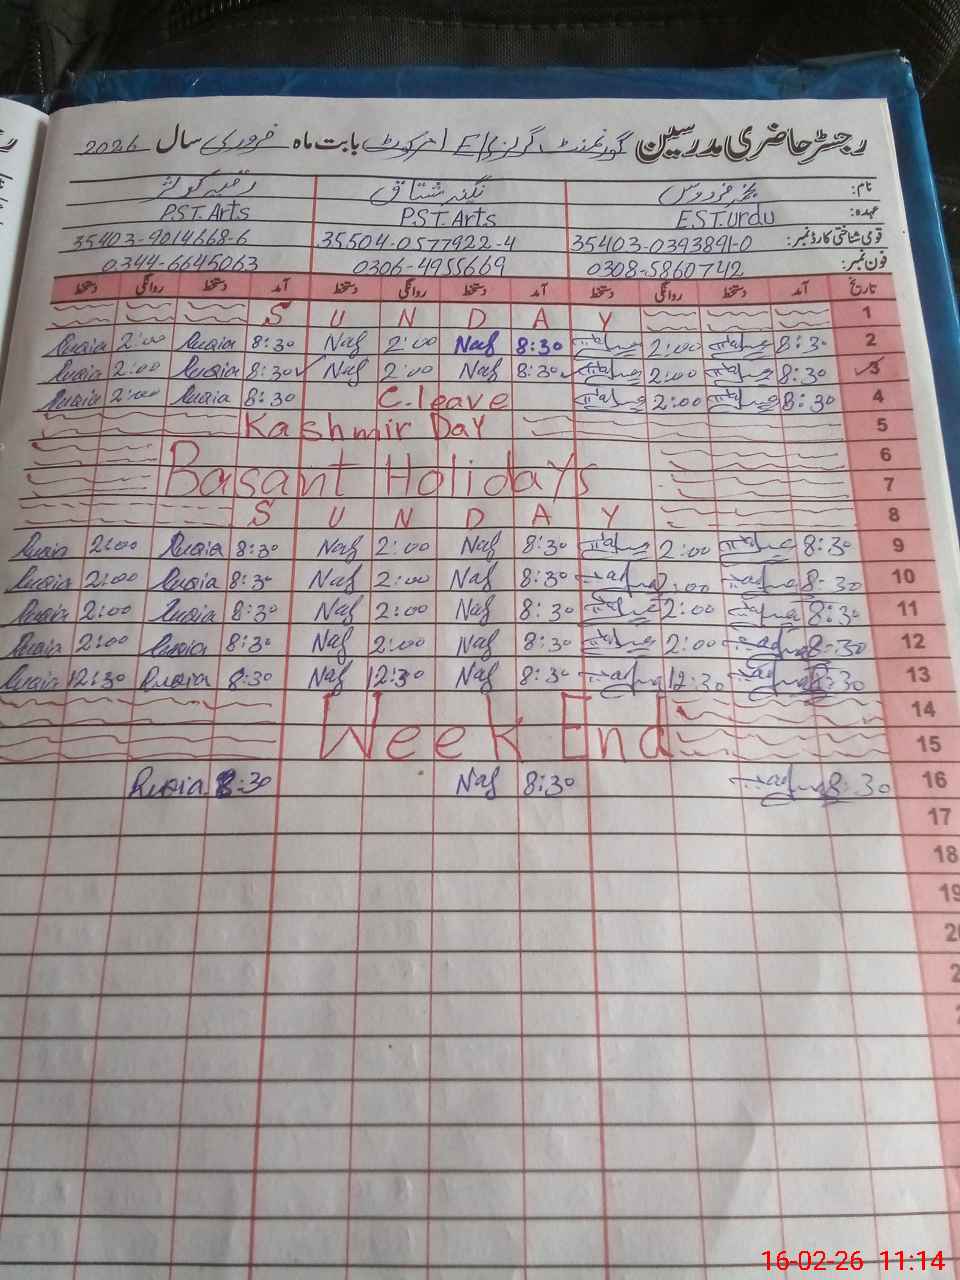 رجسٹر حاضری مدرسین گورنمنٹ گرلز E/S بابت ماہ فروری سال 2026
نام: نجمہ فردوس نگینہ مشتاق رقیہ کوثر
عہدہ: E.S.T.urdu P.S.T.Arts P.S.T.Arts
قومی شناختی کارڈ نمبر: 35403-0393891-0 35504-0577922-4 35403-9014668-6
فون نمبر: 0308-5860742 0306-4955669 0344-6645063
تاریخ آمد دستخط روانگی دستخط آمد دستخط روانگی دستخط آمد دستخط روانگی دستخط
S U N D A Y 1
Ruqia 2:00 Ruqia 8:30 Naf 2:00 Naf 8:30 2:00 8:30 2
Ruqia 2:00 Ruqia 8:30 Naf 2:00 Naf 8:30 2:00 8:30 3
Ruqia 2:00 Ruqia 8:30 C.leave 2:00 8:30 4
Kashmir Day 5
6
Basant Holidays 7
S U N D A Y 8
Ruqia 2:00 Ruqia 8:30 Naf 2:00 Naf 8:30 2:00 8:30 9
Ruqia 2:00 Ruqia 8:30 Naf 2:00 Naf 8:30 2:00 8:30 10
Ruqia 2:00 Ruqia 8:30 Naf 2:00 Naf 8:30 2:00 8:30 11
Ruqia 2:00 Ruqia 8:30 Naf 2:00 Naf 8:30 2:00 8:30 12
Ruqia 12:30 Ruqia 8:30 Naf 12:30 Naf 8:30 12:30 8:30 13
14
Week End 15
Ruqia 8:30 Naf 8:30 8:30 16
17
18
19
16-02-26 11:14